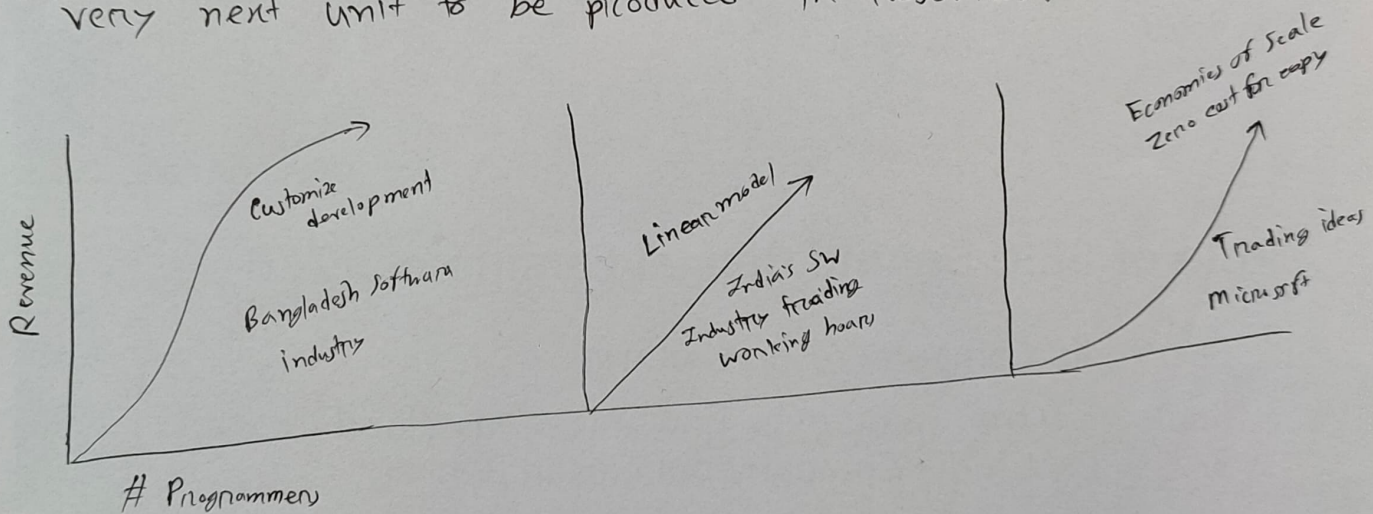 very next unit to be produced
Revenue
Customize
development
Bangladesh Software
industry
# Programmers
Linear model
India's SW
Industry trading
working hours
Economies of Scale
Zero cost for copy
Trading ideas
Microsoft